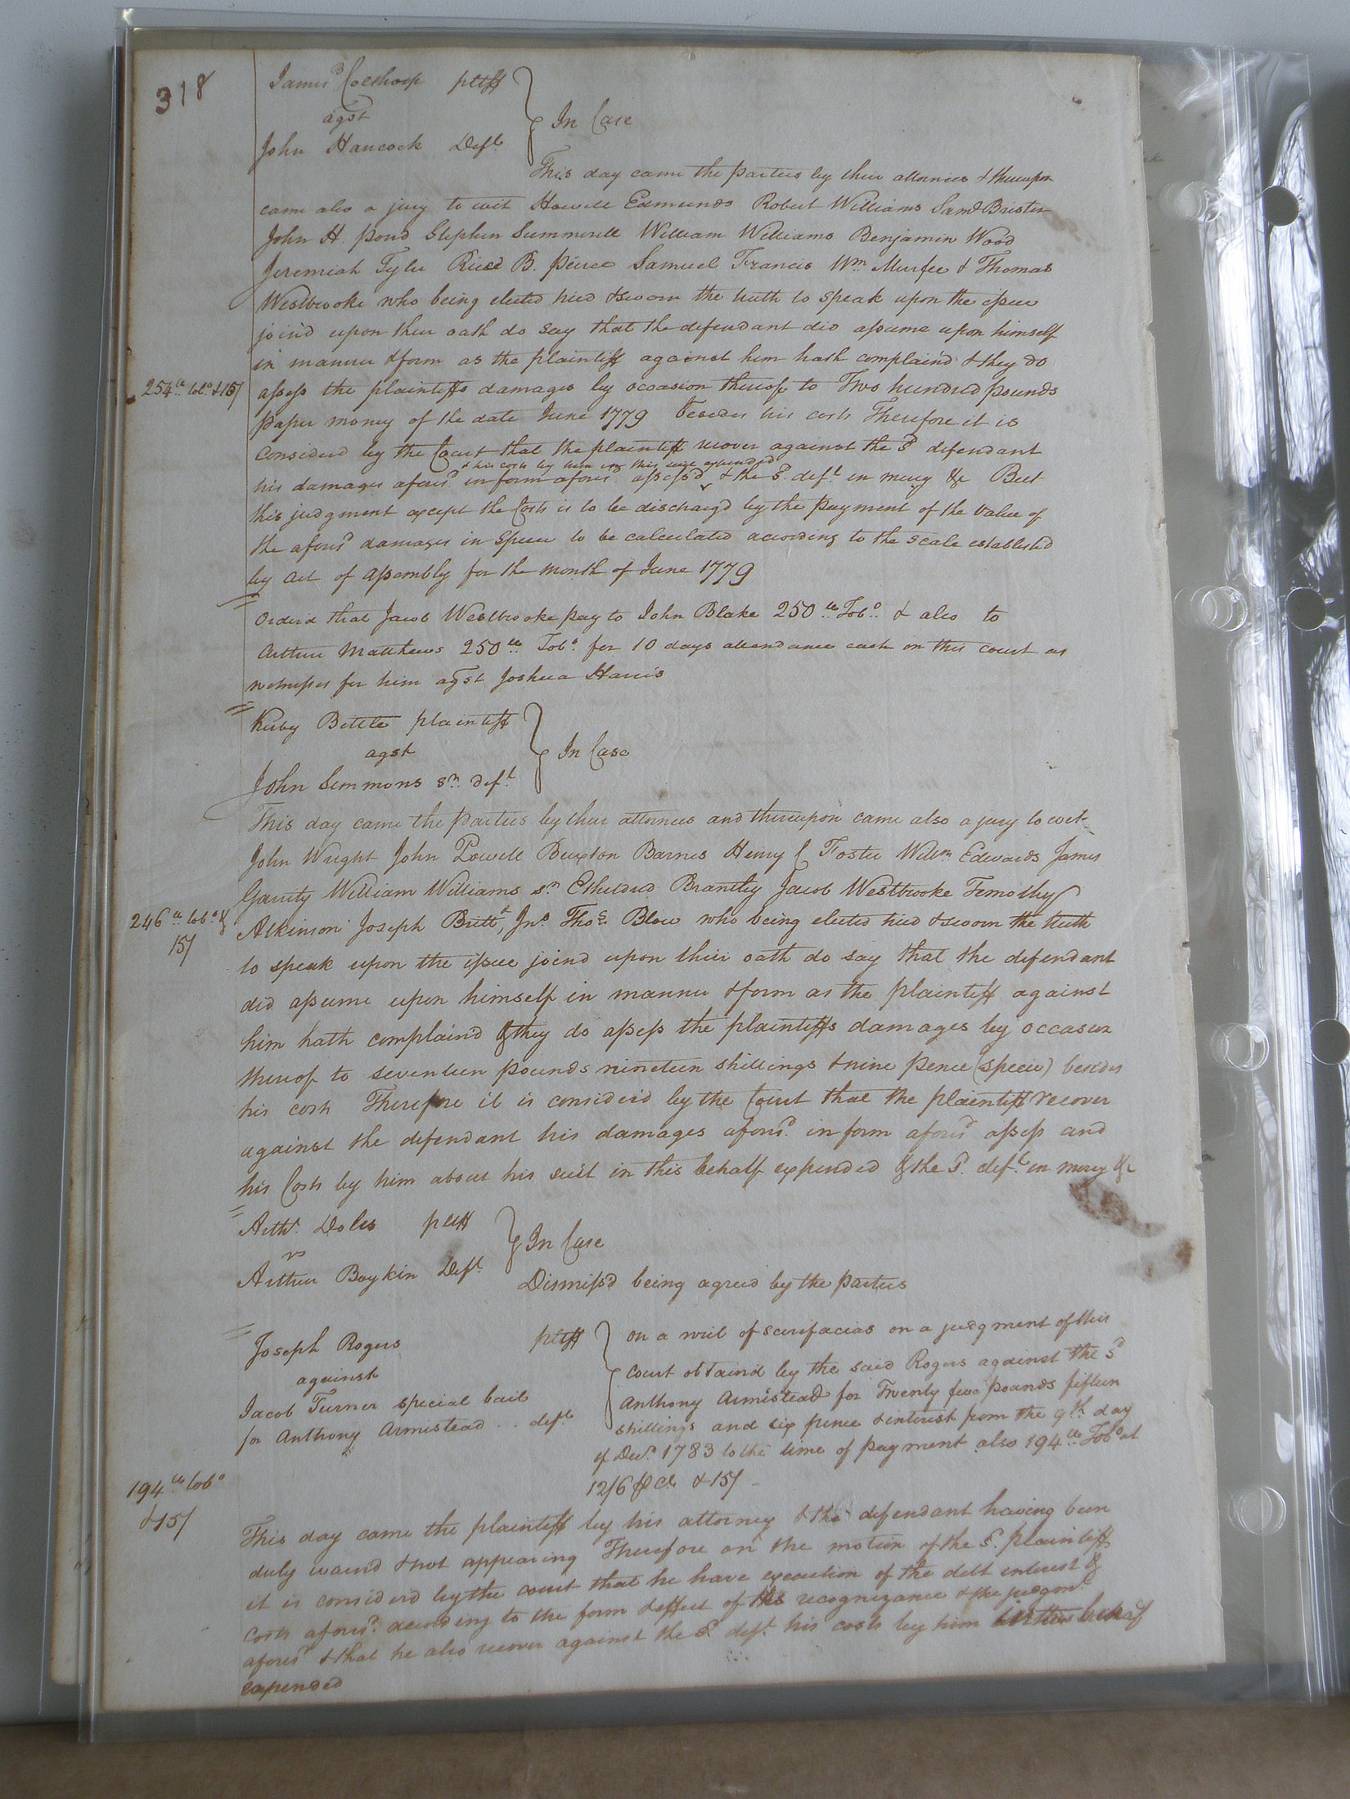 318
James Coeshoop pltff
agst
John Hancock Deft
In Case
This day came the parties by their attornies & thereupon
came also a jury to wit Howell Edmunds Robert Williams Saml Brister
John H. pond Stephen Summerell William Williams Benjamin Wood
Jeremiah Tyler Riced B. peirce Samuel Francis Wm Murfee & Thomas
Westbrooke who being elected tried & sworn the truth to speak upon the issue
join'd upon their oath do say that the defendant did assume upon himself
in manner & form as the plaintiff against him hath complaind & they do
254 lb tobo & 15/
assess the plaintiffs damages by occasion thereof to Two hundred pounds
paper money of the date June 1779 besides his costs Therefore it is
considerd by the Court that the plaintiff recover against the Sd defendant
& his costs by him in this suit expended
his damages aforesd in form aforesd assess'd & the Sd deft in mercy &c But
this judgment except the Costs is to be discharg'd by the payment of the value of
the aforesd damages in specie to be calculated according to the scale established
by act of Assembly for the month of June 1779
Orderd that Jacob Westbrooke pay to John Blake 250 lb Tobo & also to
Arthur Matthews 250 lb Tobo for 10 days attendance each on this court as
witnesses for him agst Joshua Harris
Kirby Bittle plaintiff
agst
John Simmons Sr deft
In Case
This day came the parties by their attornies and thereupon came also a jury to wit
John Wright John Powell Buxton Barnes Henry C Foster Willm Edwards James
Garrity William Williams sr Etheldred Brantley Jacob Westbrooke Timothy
246 lb tobo &
15/
Atkinson Joseph Britt, Jno Thos Blow who being elected tried & sworn the truth
to speak upon the issue joind upon their oath do say that the defendant
did assume upon himself in manner & form as the plaintiff against
him hath complaind & they do assess the plaintiffs damages by occasion
thereof to seventeen pounds nineteen shillings & nine pence (specie) besides
his costs Therefore it is considerd by the Court that the plaintiff recover
against the defendant his damages aforesd in form aforesd assess and
his Costs by him about his suit in this behalf expended & the Sd deft in mercy &c
Arthr Doles pltff
vs
Arthur Boykin Deft
In Case
Dismiss'd being agreed by the parties
Joseph Rogers pltff
against
Jacob Turner special bail
for Anthony Armistead deft
on a writ of scirefacias on a judgment of this
court obtaind by the said Rogers against the Sd
Anthony Armistead for Twenty five pounds fifteen
shillings and six pence & interest from the 9th day
of Decr 1783 to the time of payment also 194 lb Tobo at
12/6 & 15/
194 lb tobo
& 15/
This day came the plaintiff by his attorney & the defendant having been
duly warnd & not appearing Therefore on the motion of the Sd plaintiff
it is considerd by the court that he have execution of the debt interest &
costs aforesd according to the form & effect of the recognizance & the judgmt
aforesd & that he also recover against the Sd deft his costs by him in this behalf
expended